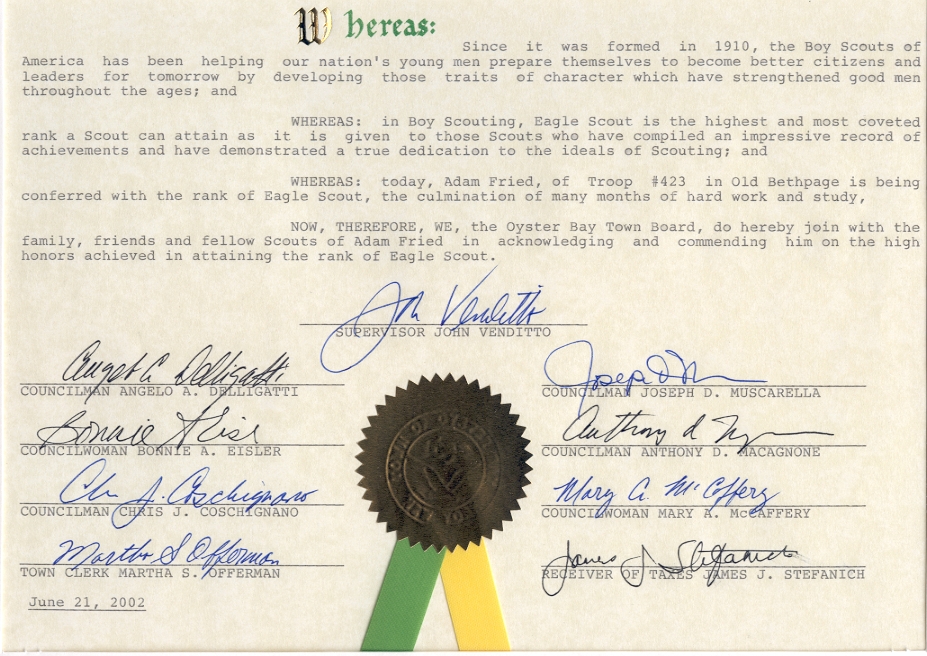 Whereas:
Since it was formed in 1910, the Boy Scouts of
America has been helping our nation's young men prepare themselves to become better citizens and
leaders for tomorrow by developing those traits of character which have strengthened good men
throughout the ages; and
WHEREAS: in Boy Scouting, Eagle Scout is the highest and most coveted
rank a Scout can attain as it is given to those Scouts who have compiled an impressive record of
achievements and have demonstrated a true dedication to the ideals of Scouting; and
WHEREAS: today, Adam Fried, of Troop #423 in Old Bethpage is being
conferred with the rank of Eagle Scout, the culmination of many months of hard work and study,
NOW, THEREFORE, WE, the Oyster Bay Town Board, do hereby join with the
family, friends and fellow Scouts of Adam Fried in acknowledging and commending him on the high
honors achieved in attaining the rank of Eagle Scout.
John Venditto
SUPERVISOR JOHN VENDITTO
Angelo A. Delligatti
COUNCILMAN ANGELO A. DELLIGATTI
Joseph D. M
COUNCILMAN JOSEPH D. MUSCARELLA
Bonnie Eisler
COUNCILWOMAN BONNIE A. EISLER
Anthony d
COUNCILMAN ANTHONY D. MACAGNONE
Chris J. Coschignano
COUNCILMAN CHRIS J. COSCHIGNANO
Mary A. McCaffery
COUNCILWOMAN MARY A. McCAFFERY
Martha S Offerman
TOWN CLERK MARTHA S. OFFERMAN
James J. Stefanich
RECEIVER OF TAXES JAMES J. STEFANICH
June 21, 2002